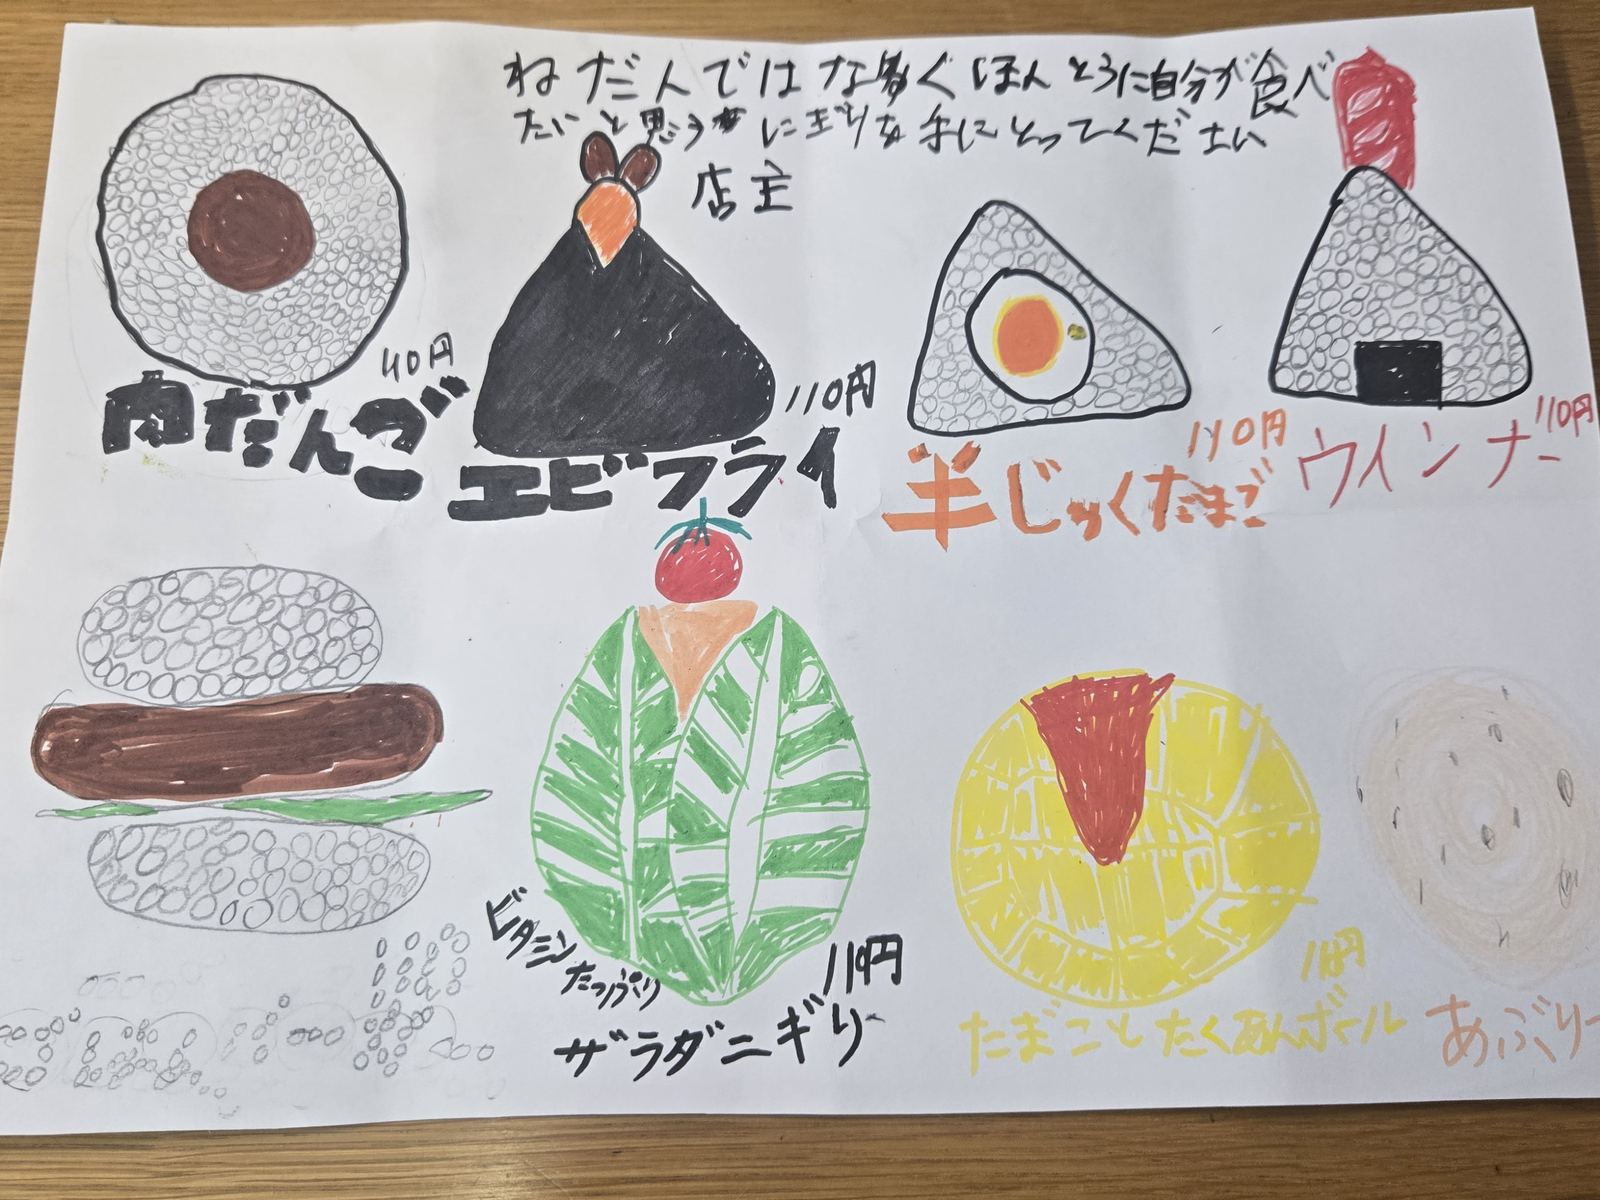 ねだんではなくほんとうに自分が食べ
たいと思うにぎりを手にとってください
店主
40円
肉だんご
110円
エビフライ
110円
半じゅくたまご
110円
ウインナー
ビタミン
たっぷり
110円
サラダニギリ
円
たまごとたくあんボール
あぶりー